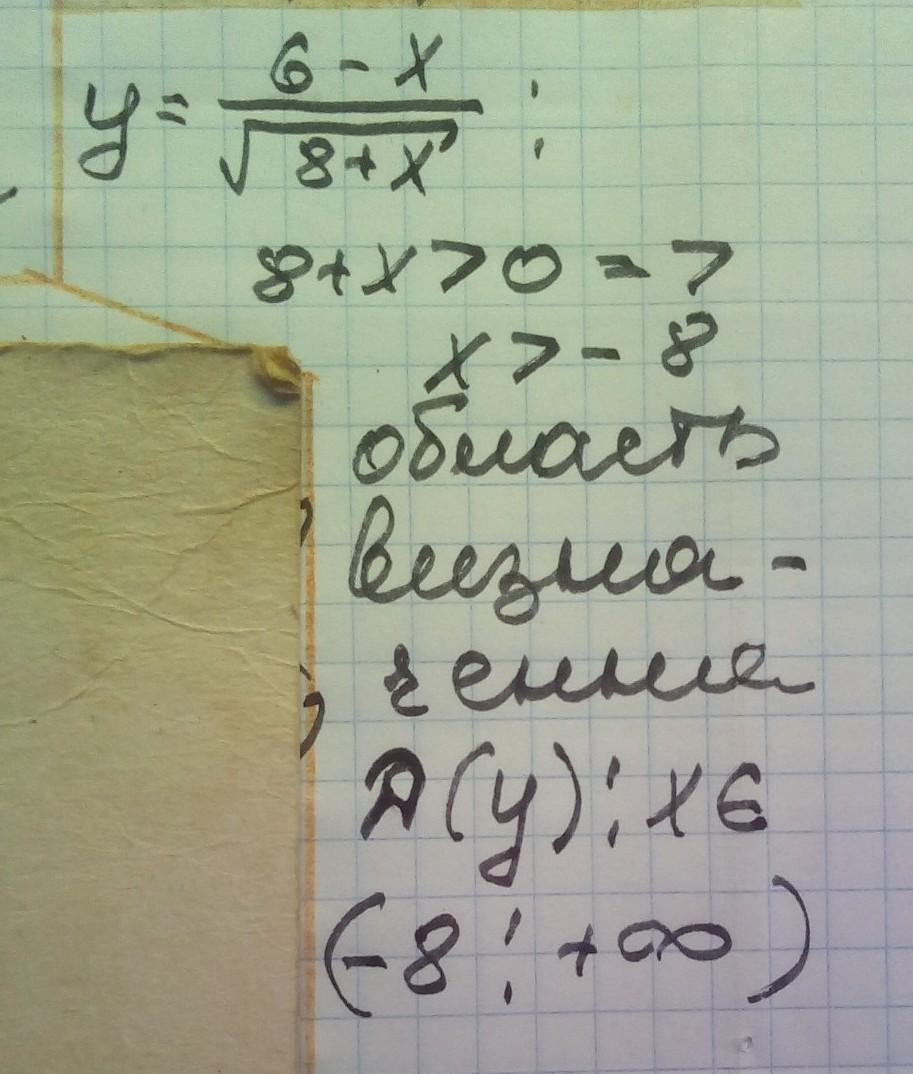 y = (6 - x) / √(8 + x) ;
8 + x > 0 =>
x > - 8
область
визна -
чення
D(y): x ∈
(-8 ; +∞)